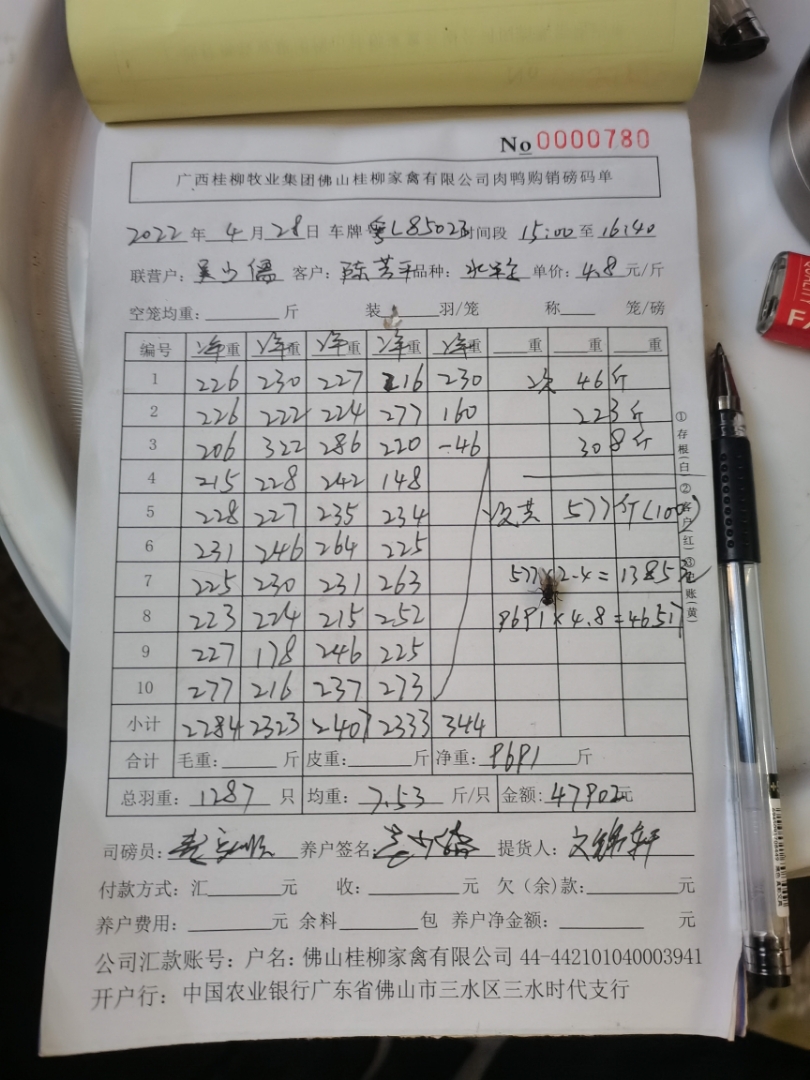 No 0000780
广西桂柳牧业集团佛山桂柳家禽有限公司肉鸭购销磅码单
2022 年 4 月 28 日 车牌 粤L85023 时间段 15:00 至 16:40
联营户: 吴少儒 客户: 陈芳平 品种: 单价: 4.8 元/斤
空笼均重: 斤 装 羽/笼 称 笼/磅
编号 净重 净重 净重 净重 净重 重 重 重
1 226 230 227 216 230 次 46斤
2 226 222 224 277 160 223斤
3 206 322 286 220 -46 308斤
4 215 228 242 148
5 228 227 235 234 次共 577斤(100)
6 231 246 264 225
7 225 230 231 263 577×2.4=1385元
8 223 224 215 252 9691×4.8=46517
9 227 178 246 225
10 277 216 237 273
小计 2284 2323 2407 2333 344
合计 毛重: 斤 皮重: 斤 净重: 9691 斤
总羽重: 1287 只 均重: 7.53 斤/只 金额: 47902元
司磅员: 养户签名: 提货人:
付款方式: 汇 元 收: 元 欠(余)款: 元
养户费用: 元 余料 包 养户净金额: 元
公司汇款账号: 户名: 佛山桂柳家禽有限公司 44-442101040003941
开户行: 中国农业银行广东省佛山市三水区三水时代支行
①存根(白)②客户(红)③记账(黄)